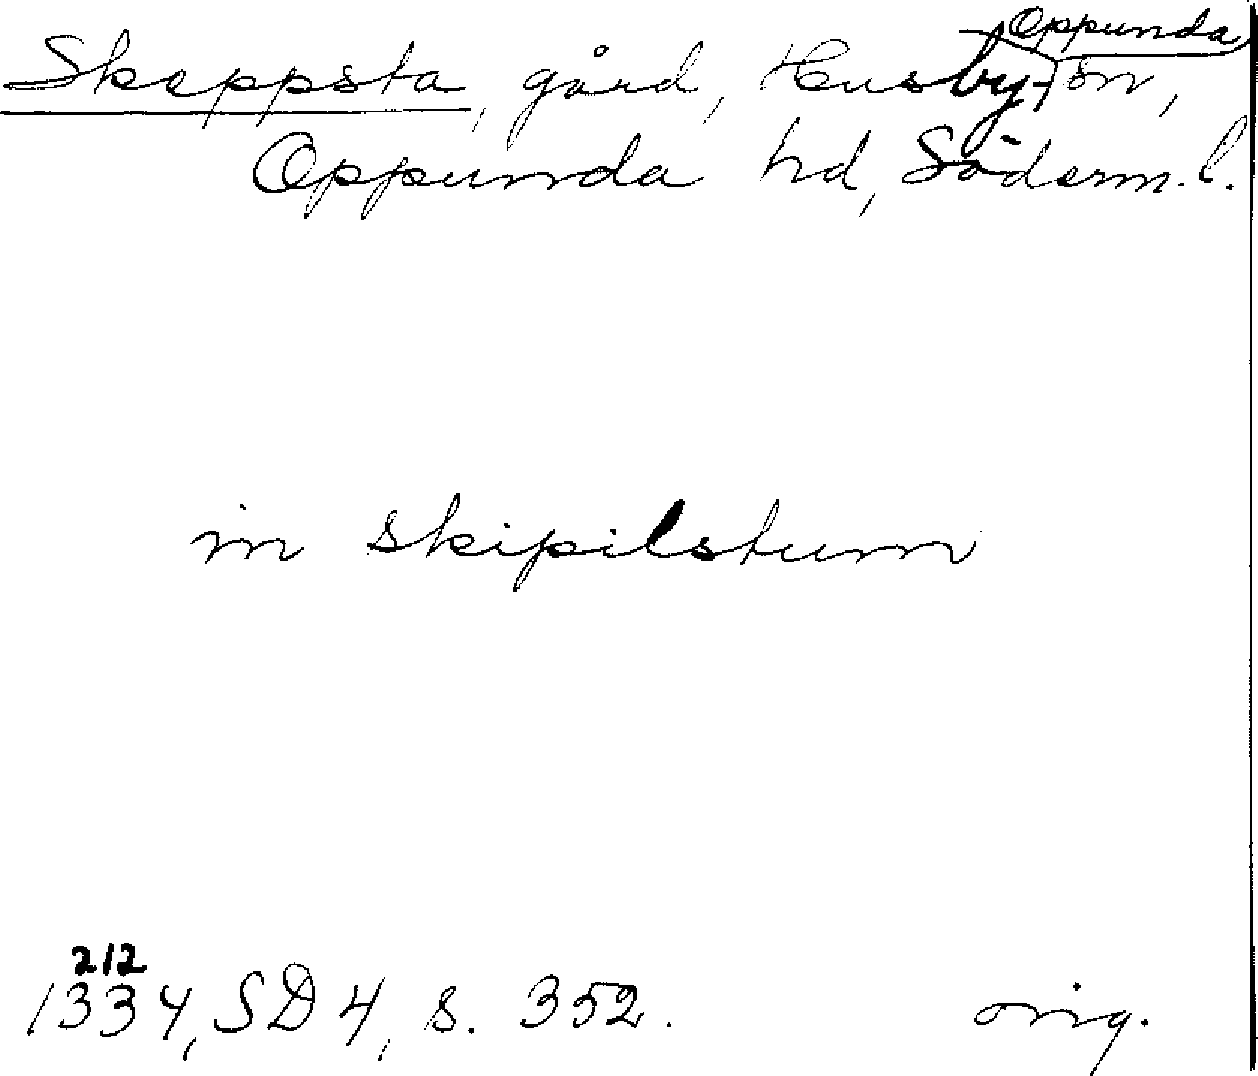 Skeppsta, gård, Husby-Oppunda sn,
Oppunda hd, Söderm. l.
in skipilstum
2/2
1334, SD 4, s. 352. orig.